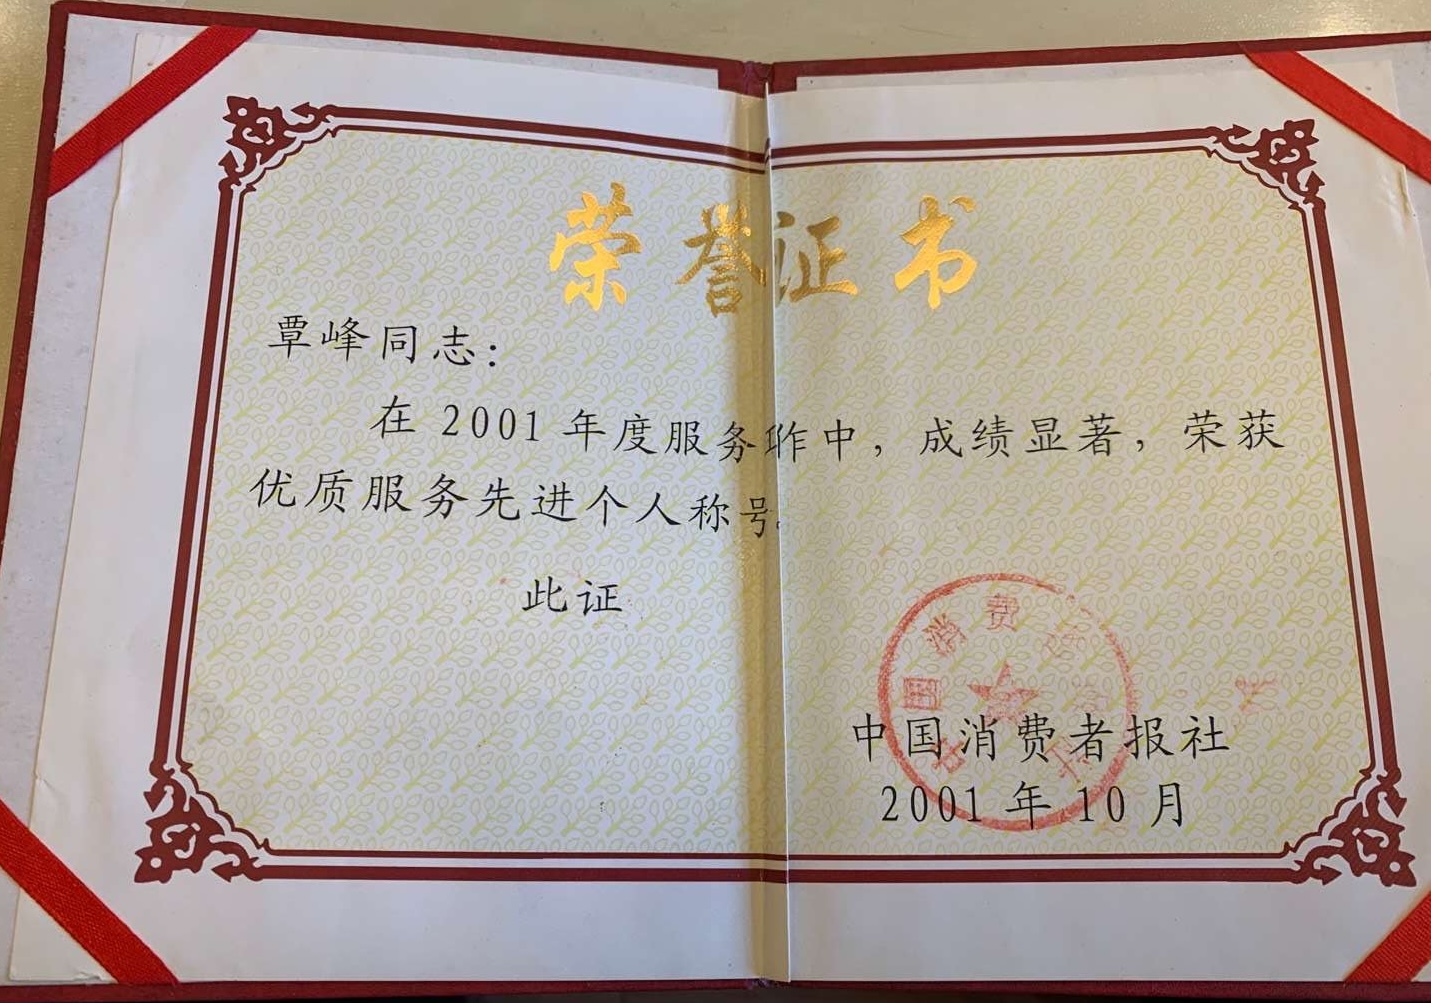 荣誉证书
覃峰同志：
在2001年度服务工作中，成绩显著，荣获
优质服务先进个人称号。
此证
中国消费者报社
2001年10月